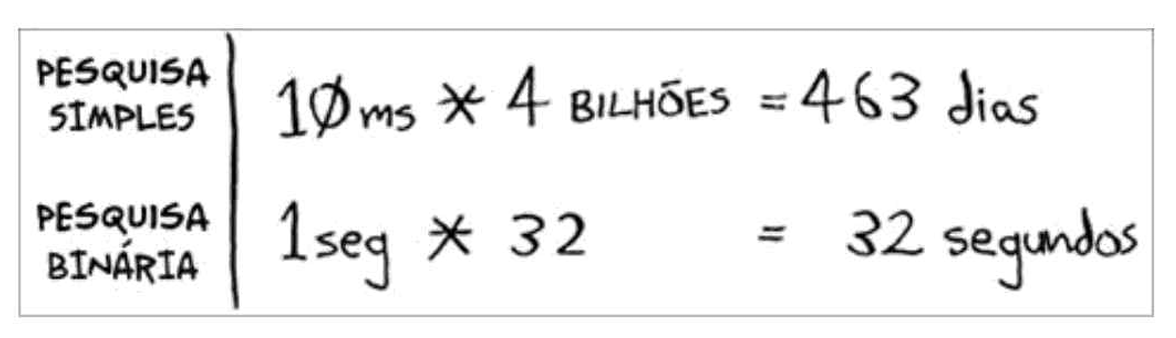 PESQUISA SIMPLES
10ms * 4 BILHÕES = 463 dias
PESQUISA BINÁRIA
1seg * 32 = 32 segundos